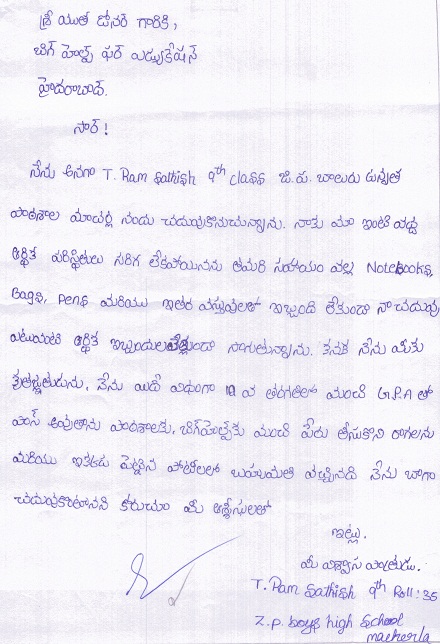 శ్రీ యుత డోనర్ గారికి,
బిగ్ హెల్ప్ ఫర్ ఎడ్యుకేషన్
హైదరాబాద్.
సార్!
నేను అనగా T. Ram Sathish 9th class జి.ప. బాలుర ఉన్నత
పాఠశాల మాచర్ల నందు చదువుకొనుచున్నాను. నాకు మా ఇంటి వద్ద
ఆర్థిక పరిస్థితులు సరిగ లేకపోయినను తమరి సహాయం వల్ల Notebooks,
Bags, pens మరియు ఇతర వస్తువులతో ఇబ్బంది లేకుండా నా చదువు
ఎటువంటి ఆర్థిక ఇబ్బందులు లేకుండా సాగుతున్నాను. కనుక నేను మీకు
కృతజ్ఞుతుడును. నేను ఇదే విధంగా 10 వ తరగతిలో మంచి G.P.A తో
పాస్ అవుతాను పాఠశాలకు, బిగ్‌హెల్ప్‌కు మంచి పేరు తీసుకొని రాగలను
మరియు ఇక్కడ పెట్టిన పోటీలలో బహుమతి వచ్చినది నేను బాగా
చదువుకొంటానని కోరుచూ మీ ఆశ్శీసులతో
ఇట్లు.
మీ విశ్వాస పాత్రుడు.
T. Ram Sathish 9th Roll: 35
Z.p. boys high school
macherla